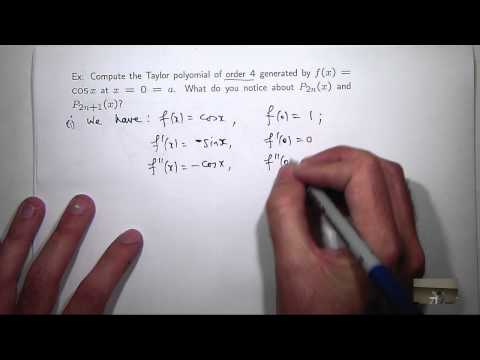 Ex: Compute the Taylor polyomial of order 4 generated by f(x) =
cos x at x = 0 = a. What do you notice about P₂ₙ(x) and
P₂ₙ₊₁(x)?
(i) We have: f(x) = cosx, f(0) = 1 ;
f'(x) = -sinx, f'(0) = 0
f''(x) = -cosx, f''(0